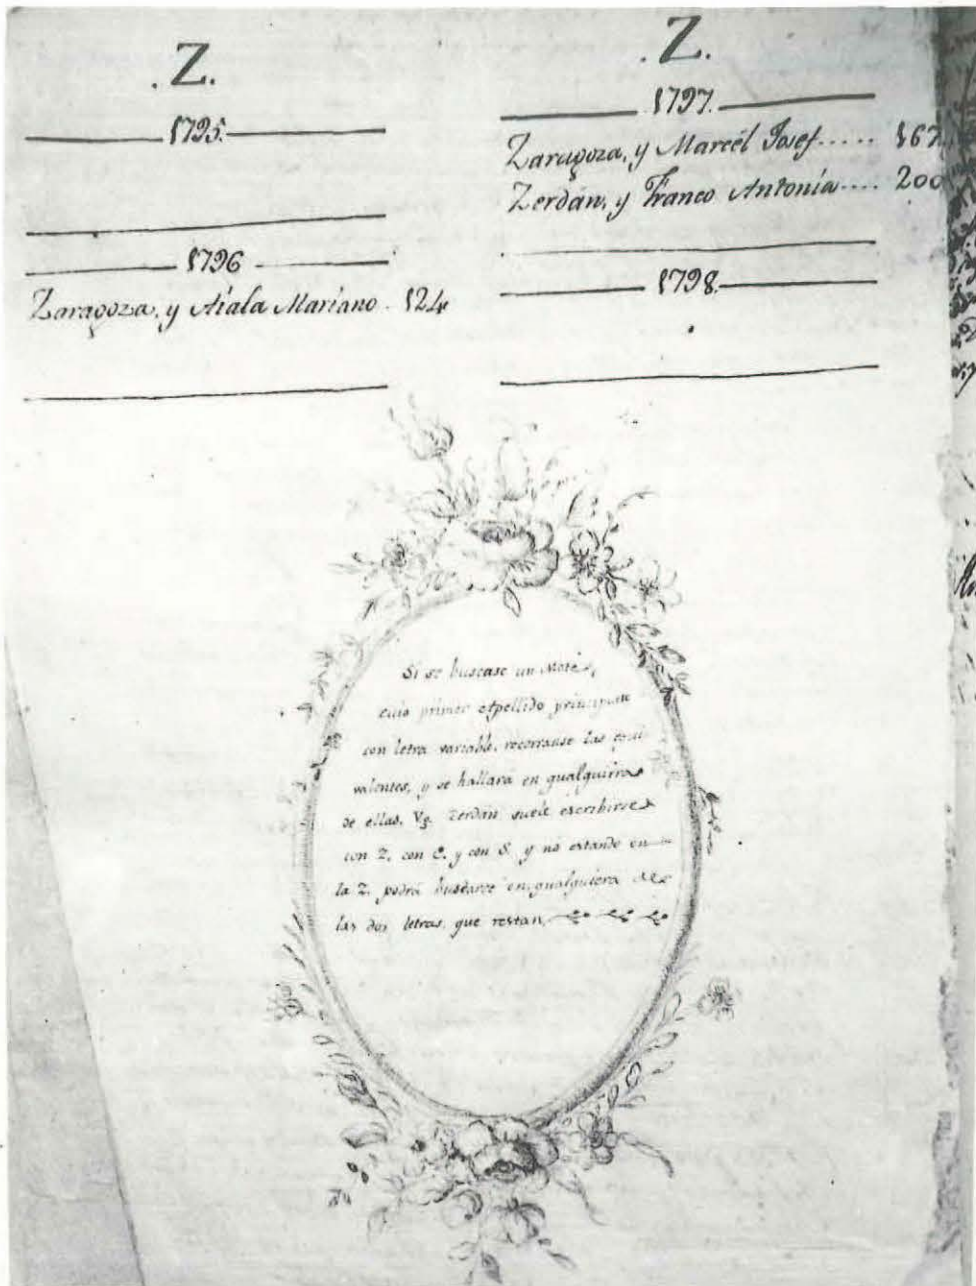 .Z.
1795.
1796
Zaragoza, y Aiala Mariano. 124
.Z.
1797.
Zaragoza, y Marcél Josef..... 167
Zerdán, y Franco Antonia.... 200
1798.
Si se buscase un
cuio primer Apellido
con letra variable, recorranse las equi-
valentes, y se hallará en qualquiera
de ellas. Vg. Zerdán suele escribirse
con Z, con C. y con S. y no estando en
la Z. podrá buscarse en qualquiera de
las dos letras, que restan.